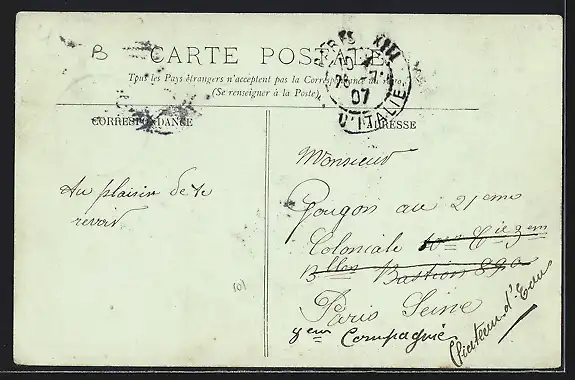 B
CARTE POSTALE
Tous les Pays étrangers n'acceptent pas la Correspondance au recto.
(Se renseigner à la Poste)
PARIS XIII
10
28 -7
07
D'ITALIE
CORRESPONDANCE
ADRESSE
Au plaisir de te
revoir
101
Monsieur
Gougon au 21eme
Coloniale 10eme Cie 3em
Blles Bastion 89a
Paris Seine
9eme Compagnie
Chateau d'Eau